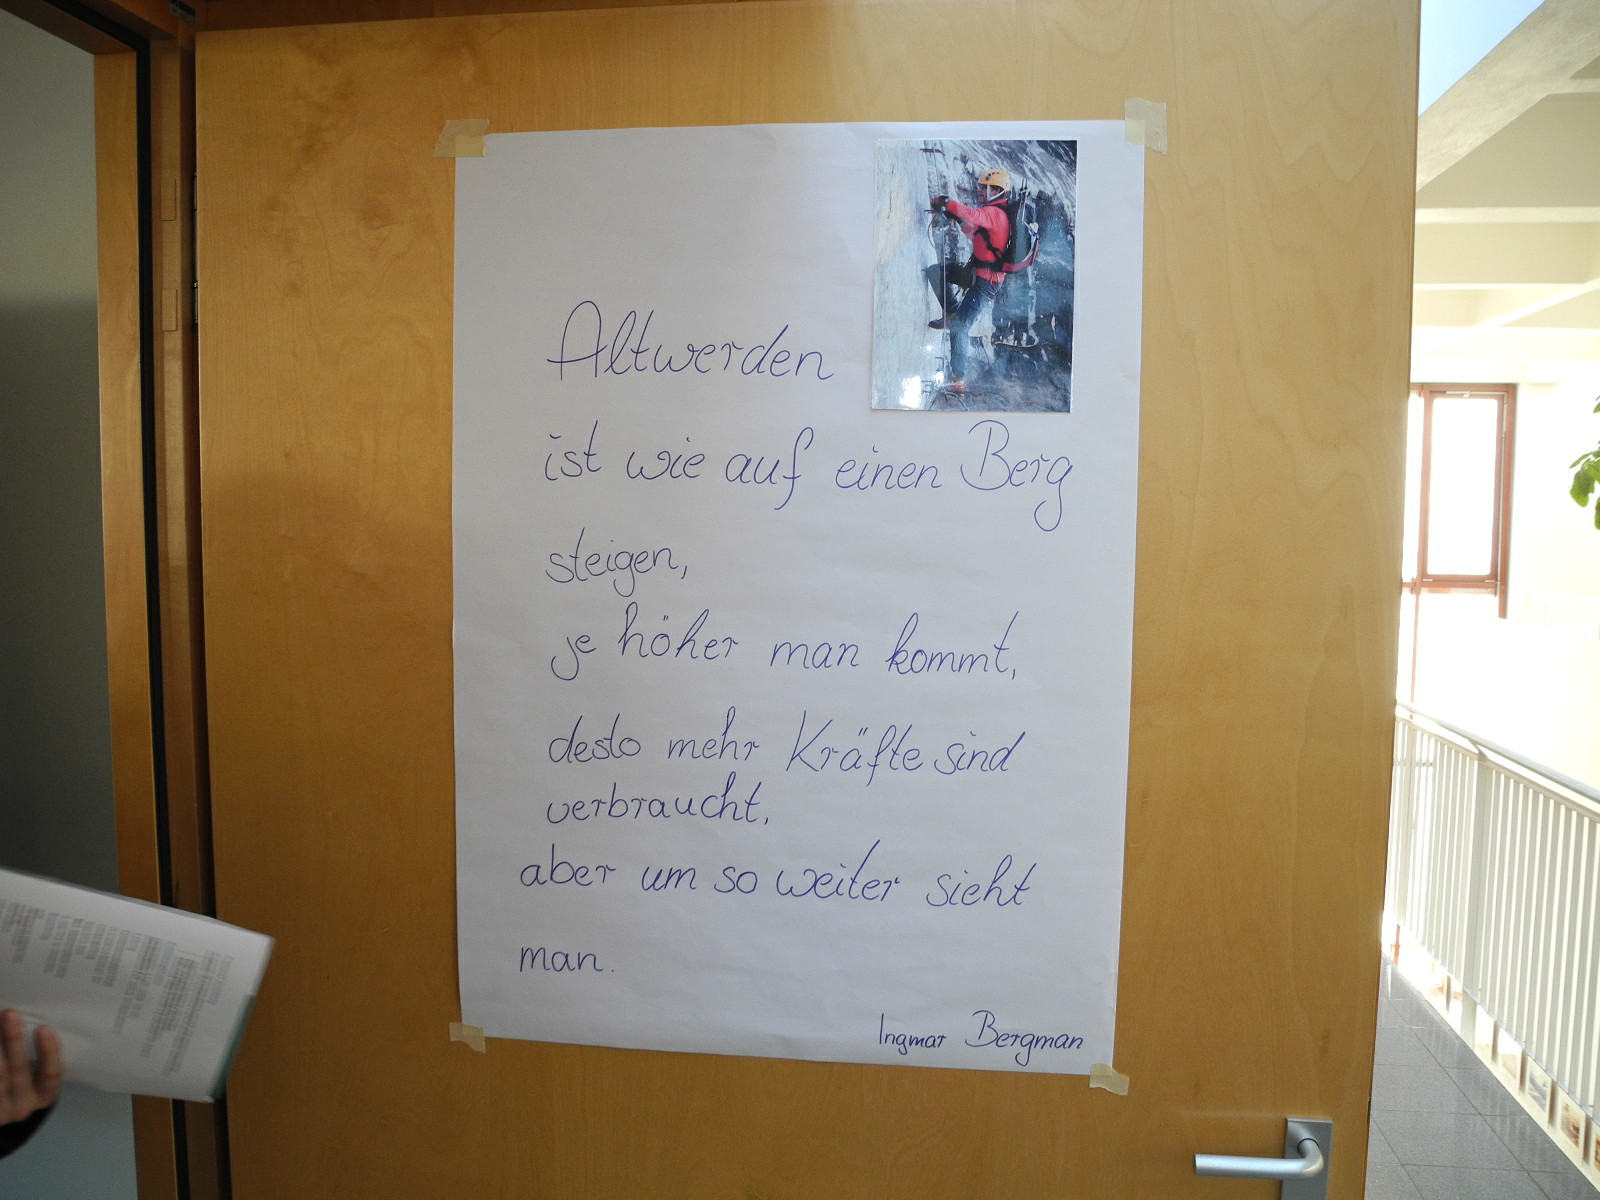 Altwerden
ist wie auf einen Berg
steigen,
je höher man kommt,
desto mehr Kräfte sind
verbraucht,
aber um so weiter sieht
man.
Ingmar Bergman